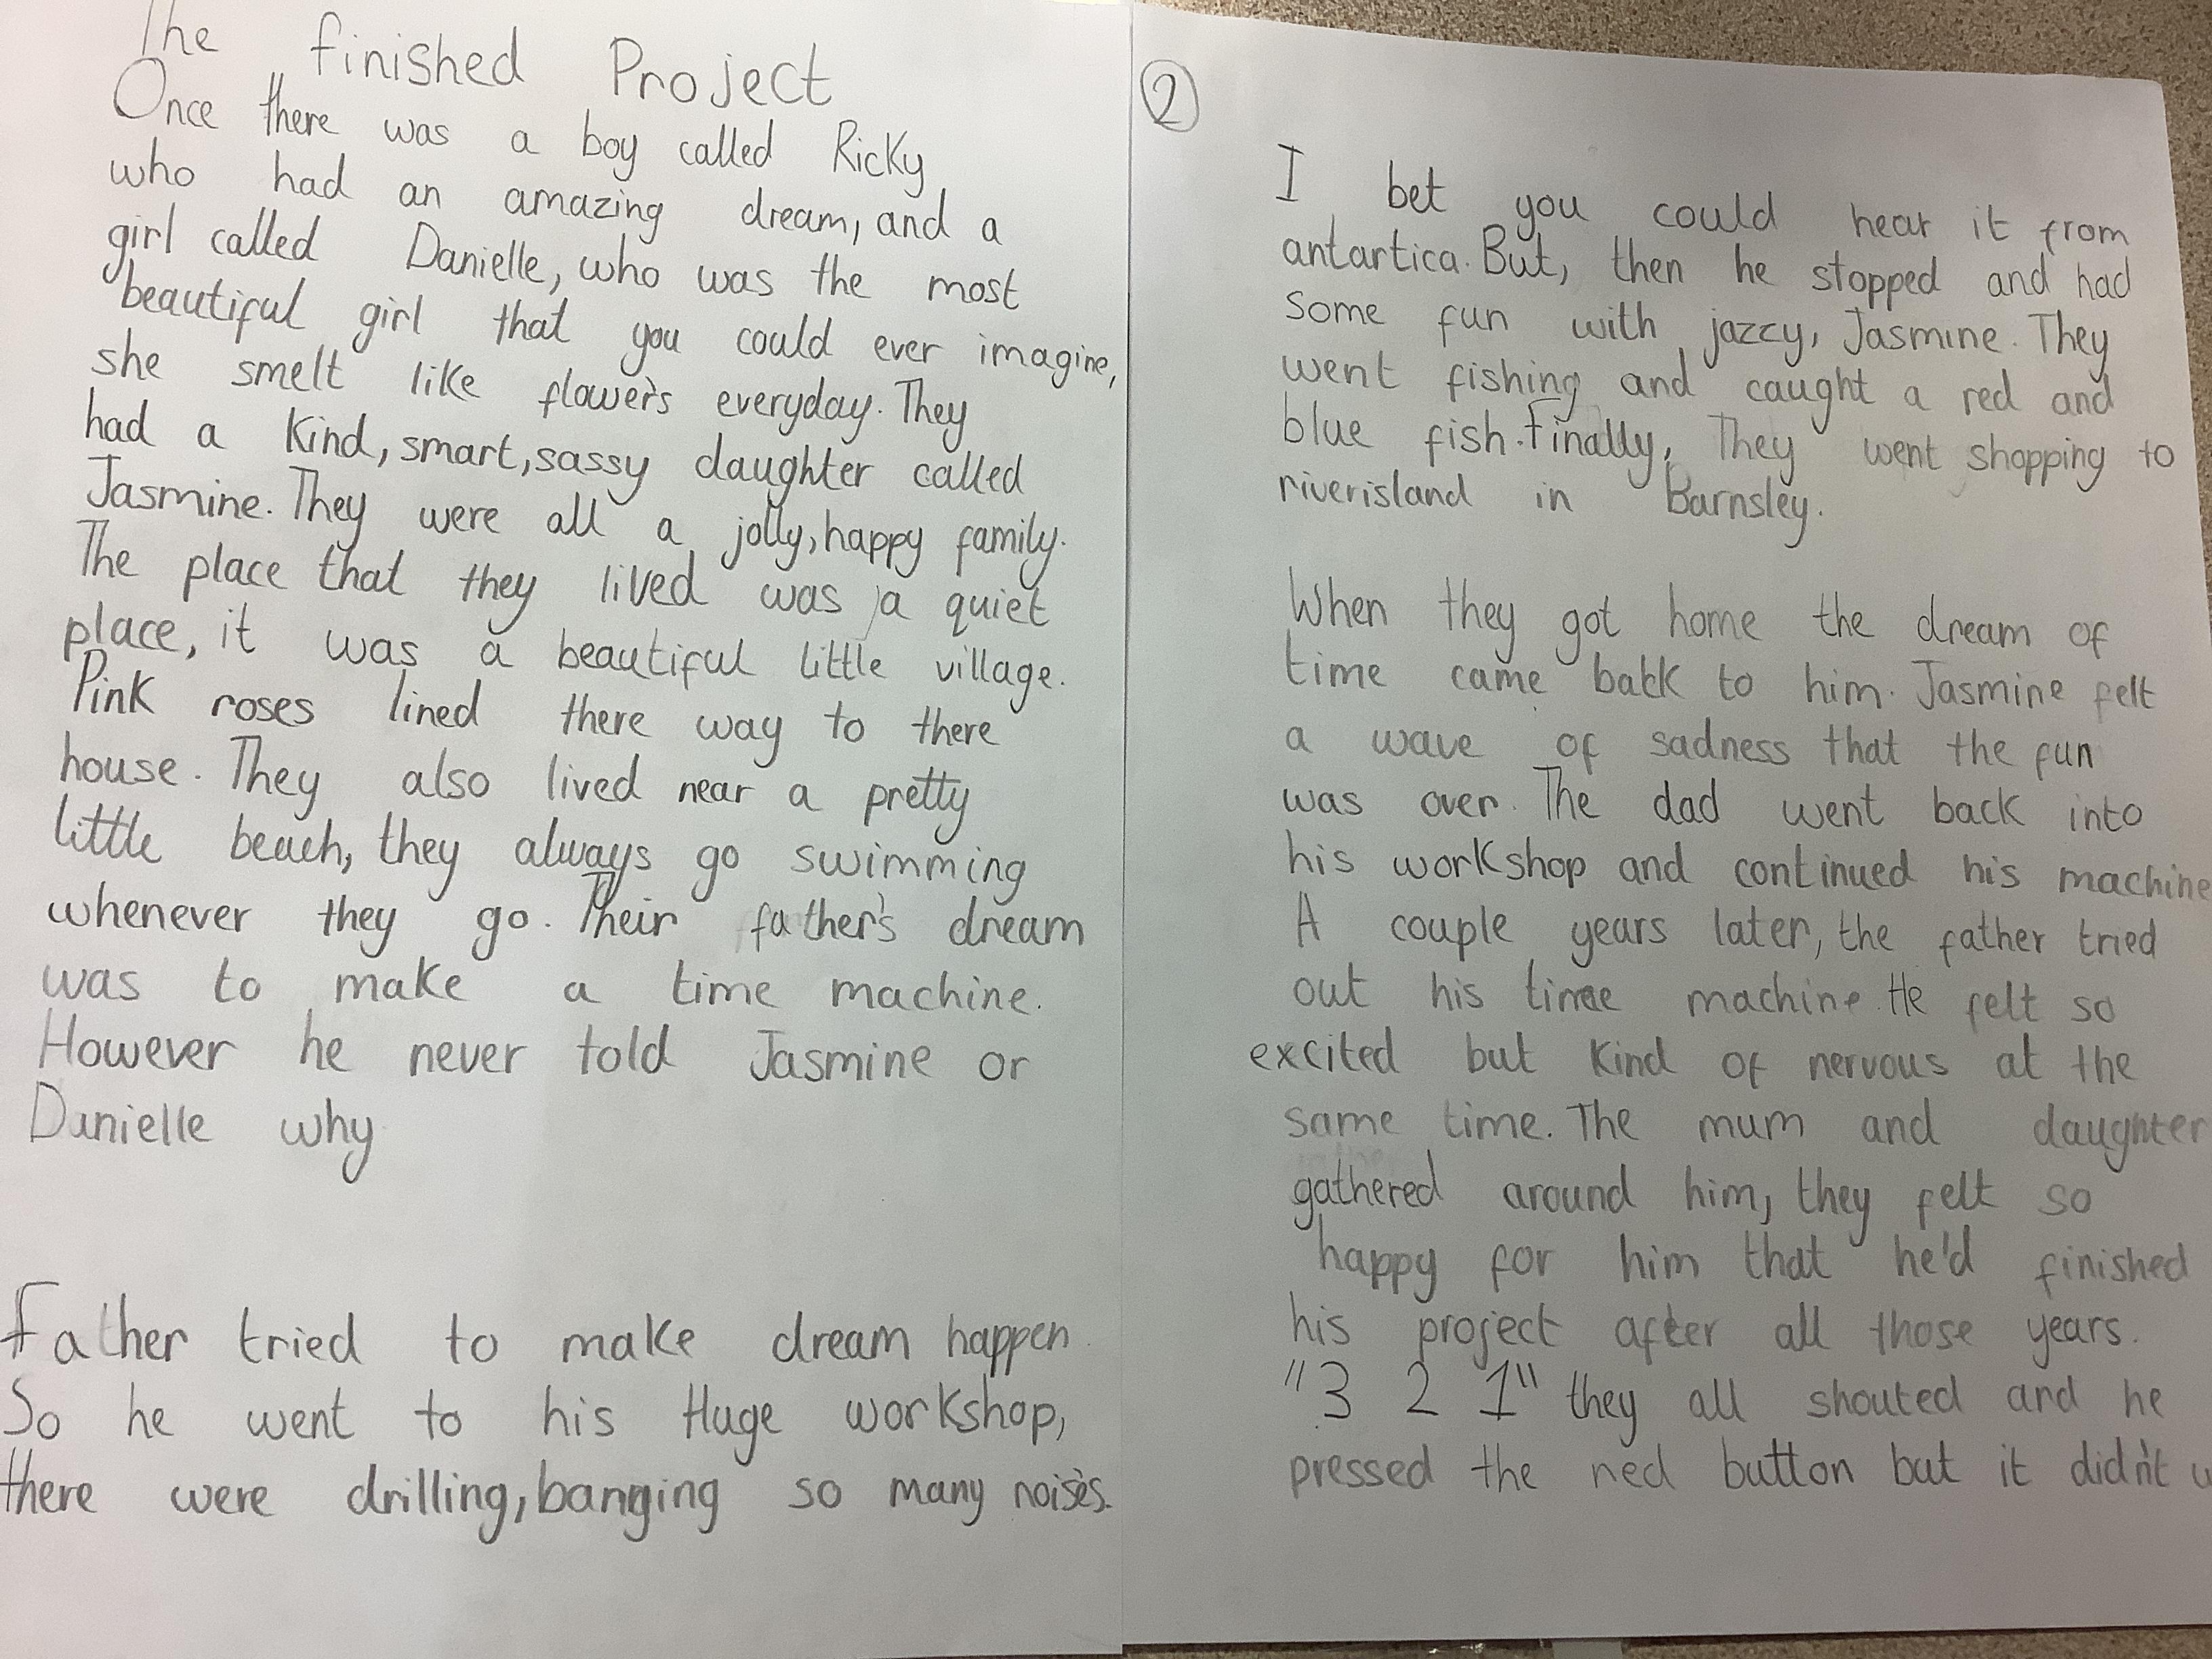 The finished Project
Once there was a boy called Ricky
who had an amazing dream, and a
girl called Danielle, who was the most
beautiful girl that you could ever imagine,
she smelt like flower's everyday. They
had a kind, smart, sassy daughter called
Jasmine. They were all a jolly, happy family.
The place that they lived was a quiet
place, it was a beautiful little village.
Pink roses lined there way to there
house. They also lived near a pretty
little beach, they always go swimming
whenever they go. Their father's dream
was to make a time machine.
However he never told Jasmine or
Danielle why
Father tried to make dream happen.
So he went to his Huge workshop,
there were drilling, banging so many noise's.
2
I bet you could hear it from
antartica. But, then he stopped and had
some fun with jazzy, Jasmine. They
went fishing and caught a red and
blue fish. Finally, They went shopping to
riverisland in Barnsley.
When they got home the dream of
time came back to him. Jasmine felt
a wave of sadness that the fun
was over. The dad went back into
his workshop and continued his machine
A couple years later, the father tried
out his time machine. He felt so
excited but kind of nervous at the
same time. The mum and daughter
gathered around him, they felt so
happy for him that he'd finished
his project after all those years.
"3 2 1" they all shouted and he
pressed the red button but it didn't